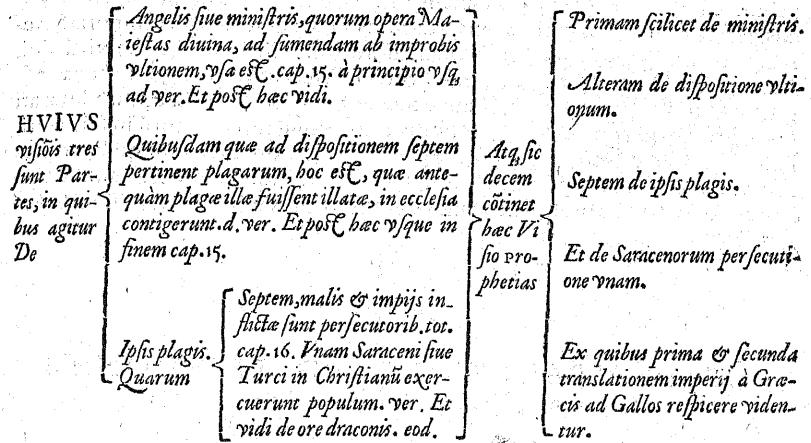 HVIVS
visiõis tres
sunt Par-
tes, in qui-
bus agitur
De
Angelis siue ministris, quorum opera Ma-
iestas diuina, ad sumendam ab improbis
vltionem, vsa est .cap. 15. à principio vsq;
ad ver. Et post hæc vidi.
Quibusdam quæ ad dispositionem septem
pertinent plagarum, hoc est, quæ ante-
quàm plagæ illæ fuissent illatæ, in ecclesia
contigerunt. d. ver. Et post hæc vsque in
finem cap. 15.
Ipsis plagis.
Quarum
Septem, malis & impijs in-
flictæ sunt persecutorib. tot.
cap. 16. Vnam Saraceni siue
Turci in Christianũ exer-
cuerunt populum. ver. Et
vidi de ore draconis. eod.
Atq; sic
decem
cõtinet
hæc Vi
sio pro-
phetias
Primam scilicet de ministris.
Alteram de dispositione vlti-
onum.
Septem de ipsis plagis.
Et de Saracenorum persecuti-
one vnam.
Ex quibus prima & secunda
translationem imperij à Græ-
cis ad Gallos respicere viden-
tur.